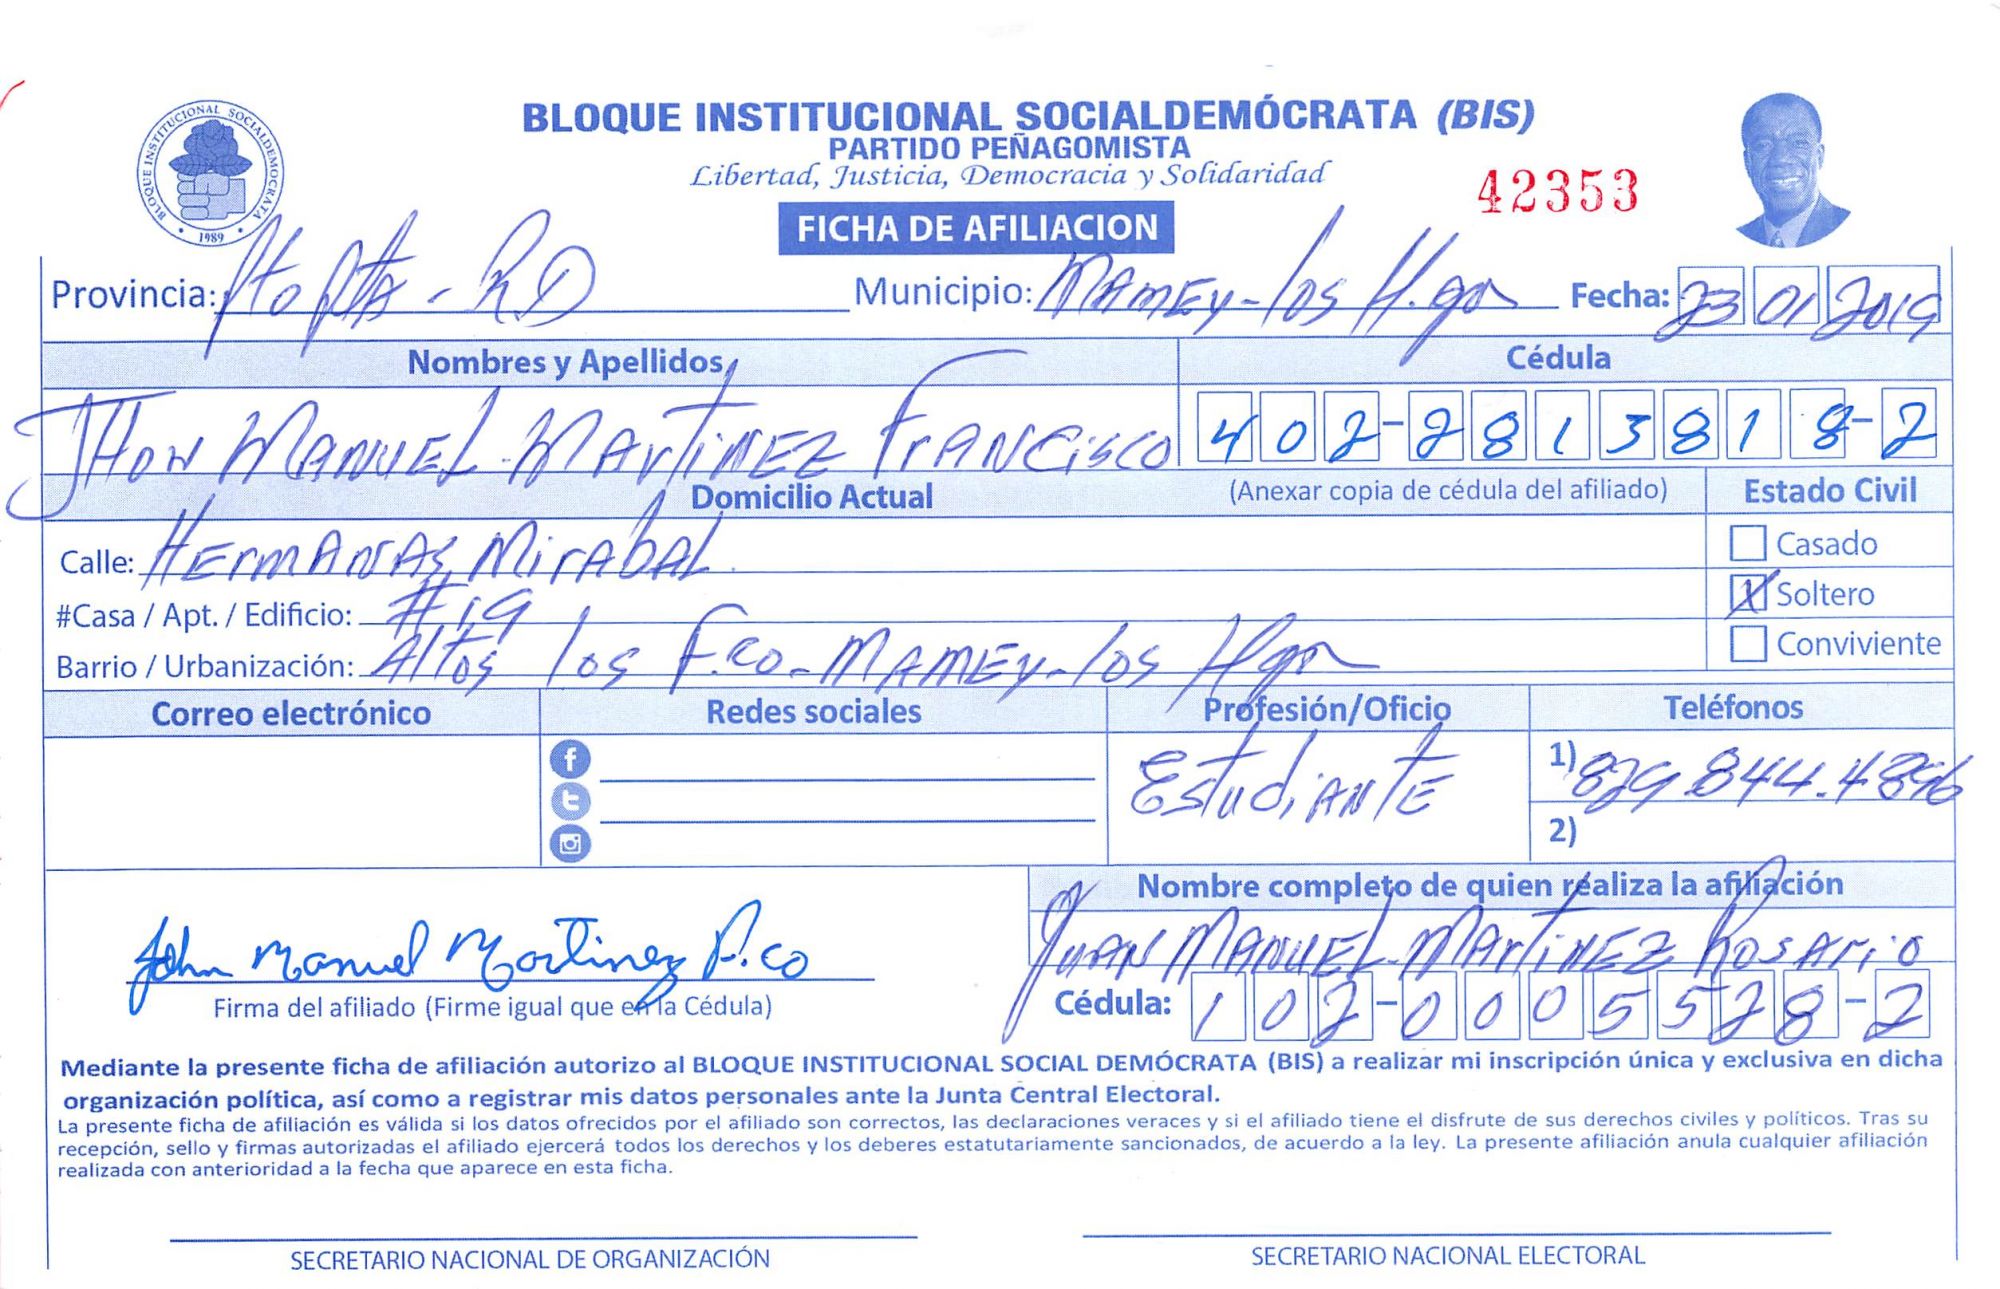 BLOQUE INSTITUCIONAL SOCIALDEMÓCRATA (BIS)
PARTIDO PEÑAGOMISTA
Libertad, Justicia, Democracia y Solidaridad
42353
BLOQUE INSTITUCIONAL SOCIALDEMOCRATA
1989
FICHA DE AFILIACION
Provincia: Pto Pta - RD Municipio: MAMEY - los H.gos Fecha: 23 01 2019
Nombres y Apellidos Cédula
JHON MANUEL MARTINEZ FRANCISCO 402-2813818-2
Domicilio Actual (Anexar copia de cédula del afiliado) Estado Civil
Calle: HERMANAS MirAbAL Casado
#Casa / Apt. / Edificio: #19 X Soltero
Barrio / Urbanización: Altos los F.co - MAMEY - los Hgos Conviviente
Correo electrónico Redes sociales Profesión/Oficio Teléfonos
EstudiANTE 1) 829.844.4896
2)
Nombre completo de quien realiza la afiliación
John Manuel Martinez F.co JUAN MANUEL MARTINEZ ROSARIO
Firma del afiliado (Firme igual que en la Cédula) Cédula: 102-0005528-2
Mediante la presente ficha de afiliación autorizo al BLOQUE INSTITUCIONAL SOCIAL DEMÓCRATA (BIS) a realizar mi inscripción única y exclusiva en dicha
organización política, así como a registrar mis datos personales ante la Junta Central Electoral.
La presente ficha de afiliación es válida si los datos ofrecidos por el afiliado son correctos, las declaraciones veraces y si el afiliado tiene el disfrute de sus derechos civiles y políticos. Tras su
recepción, sello y firmas autorizadas el afiliado ejercerá todos los derechos y los deberes estatutariamente sancionados, de acuerdo a la ley. La presente afiliación anula cualquier afiliación
realizada con anterioridad a la fecha que aparece en esta ficha.
SECRETARIO NACIONAL DE ORGANIZACIÓN SECRETARIO NACIONAL ELECTORAL